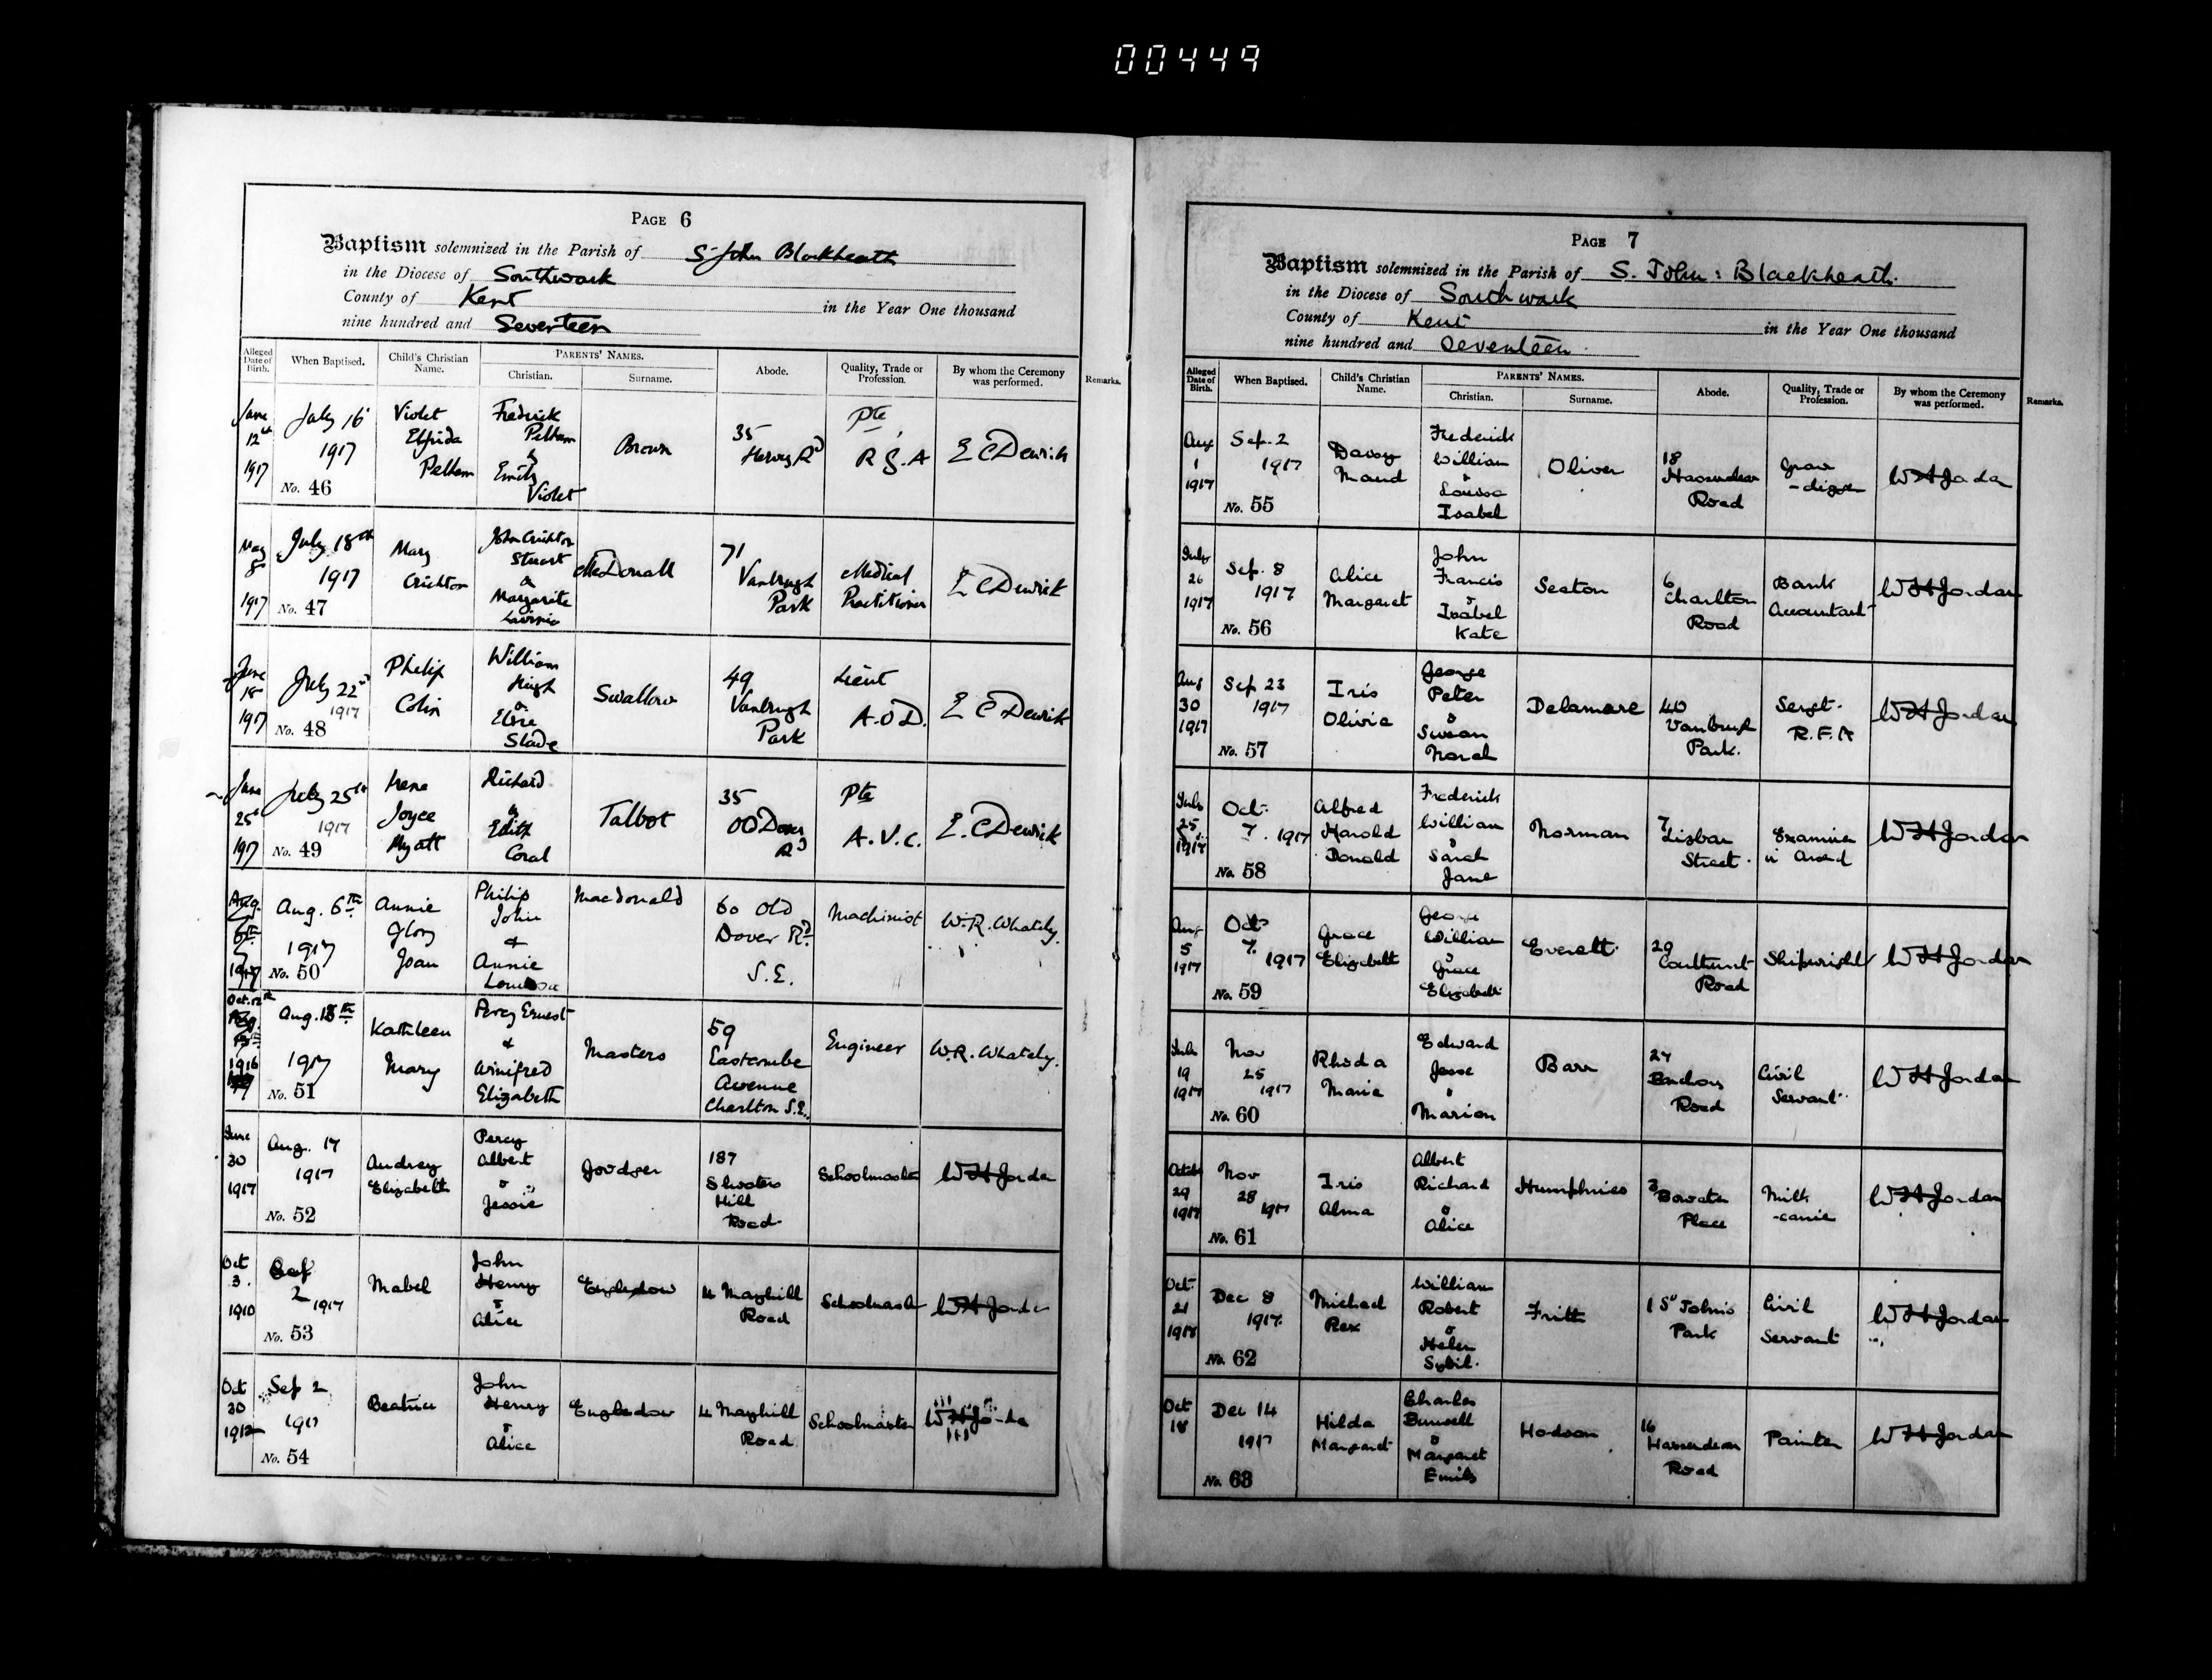 00449
PAGE 6
Baptism solemnized in the Parish of S. John Blackheath
in the Diocese of Southwark
County of Kent in the Year One thousand
nine hundred and Seventeen
Alleged Date of Birth. When Baptised. Child's Christian Name. PARENTS' NAMES. Christian. Surname. Abode. Quality, Trade or Profession. By whom the Ceremony was performed. Remarks.
June 12th 1917 July 16 1917 No. 46 Violet Elfrida Pelham Frederick Pelham & Emily Violet Brown 35 Hervey Rd Pte. R.G.A E C Dewick
May 8 1917 July 18th 1917 No. 47 Mary Crichton John Crichton Stuart & Margarite Lavinia McDonall 71 Vanbrugh Park Medical Practitioner E C Dewick
June 18 1917 July 22nd 1917 No. 48 Philip Colin William Hugh & Elsie Slade Swallow 49 Vanbrugh Park Lieut A.O.D. E C Dewick
June 25th 1917 July 25th 1917 No. 49 Irene Joyce Myatt Richard & Edith Coral Talbot 35 Old Dover Rd Pte A.V.C. E. C Dewick
Aug. 6th 1917 No. 50 Annie Glory Joan Philip John & Annie Louisa Macdonald 60 Old Dover Rd. S.E. Machinist W.R. Whately.
Oct. 12th 1916 Aug. 18th 1917 No. 51 Kathleen Mary Percy Ernest & Winifred Elizabeth Masters 59 Eastcombe Avenue Charlton S.E. Engineer W.R. Whately.
June 30 1917 Aug. 17 1917 No. 52 Audrey Elizabeth Percy Albert & Jessie Goodger 187 Shooters Hill Road Schoolmaster W H Jordan
Oct 3. 1910 Sep 2 1917 No. 53 Mabel John Henry & Alice Engledow 4 Mayhill Road Schoolmaster W H Jordan
Oct 30 1912 Sep 2 1917 No. 54 Beatrice John Henry & Alice Engledow 4 Mayhill Road Schoolmaster W H Jordan
PAGE 7
Baptism solemnized in the Parish of S. John: Blackheath.
in the Diocese of Southwark
County of Kent in the Year One thousand
nine hundred and Seventeen
Alleged Date of Birth. When Baptised. Child's Christian Name. PARENTS' NAMES. Christian. Surname. Abode. Quality, Trade or Profession. By whom the Ceremony was performed. Remarks.
Aug 1 1917 Sep. 2 1917 No. 55 Daisy Maud Frederick William & Louisa Isabel Oliver 18 Hassendean Road Grave-digger W H Jordan
July 26 1917 Sep. 8 1917 No. 56 Alice Margaret John Francis & Isabel Kate Seaton 6 Charlton Road Bank Accountant W H Jordan
Aug 30 1917 Sep 23 1917 No. 57 Iris Olivia George Peter & Susan Norah Delamare 40 Vanbrugh Park. Sergt. R.F.A W H Jordan
July 25 1917 Oct. 7. 1917 No. 58 Alfred Harold Donald Frederick William & Sarah Jane Norman 7 Lisbon Street. Examiner in W H Jordan
Aug 5 1917 Oct 7. 1917 No. 59 Grace Elizabeth George William & Grace Elizabeth Everett 29 Coulthurst Road Shipwright W H Jordan
July 19 1917 Nov 25 1917 No. 60 Rhoda Marie Edward Jesse & Marion Barr 24 Road Civil Servant W H Jordan
October 29 1917 Nov 28 1917 No. 61 Iris Alma Albert Richard & Alice Humphries 3 Bowater Place Milk-carrier W H Jordan
Oct. 21 1917 Dec 8 1917. No. 62 Michael Rex William Robert & Helen Sybil. Fritt 1 St John's Park Civil Servant W H Jordan
Oct 18 Dec 14 1917 No. 63 Hilda Margaret Charles & Margaret Emily Hodson 16 Hassendean Road Painter W H Jordan